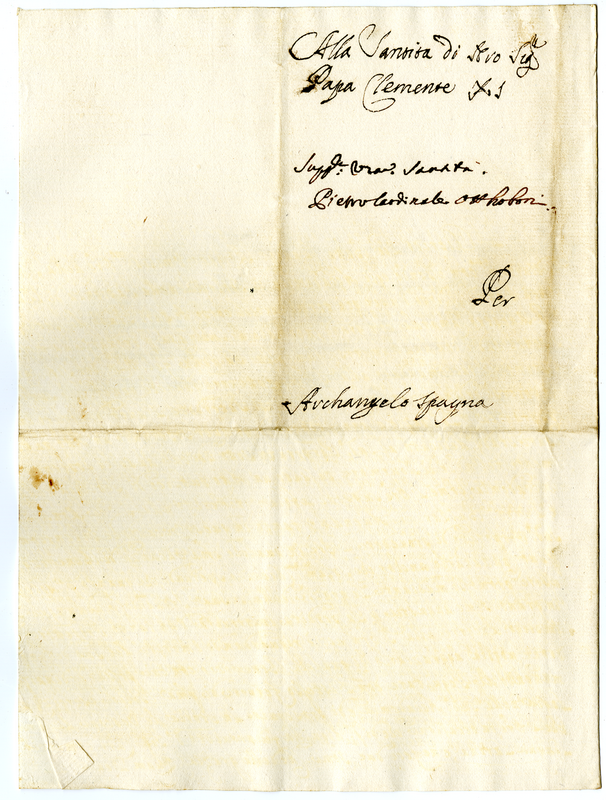 Alla Santità di Nro Sigre
Papa Clemente XI
Suppca: Vra: Santità.
Pietro Cardinale Otthoboni
Per
Archangelo Spagna